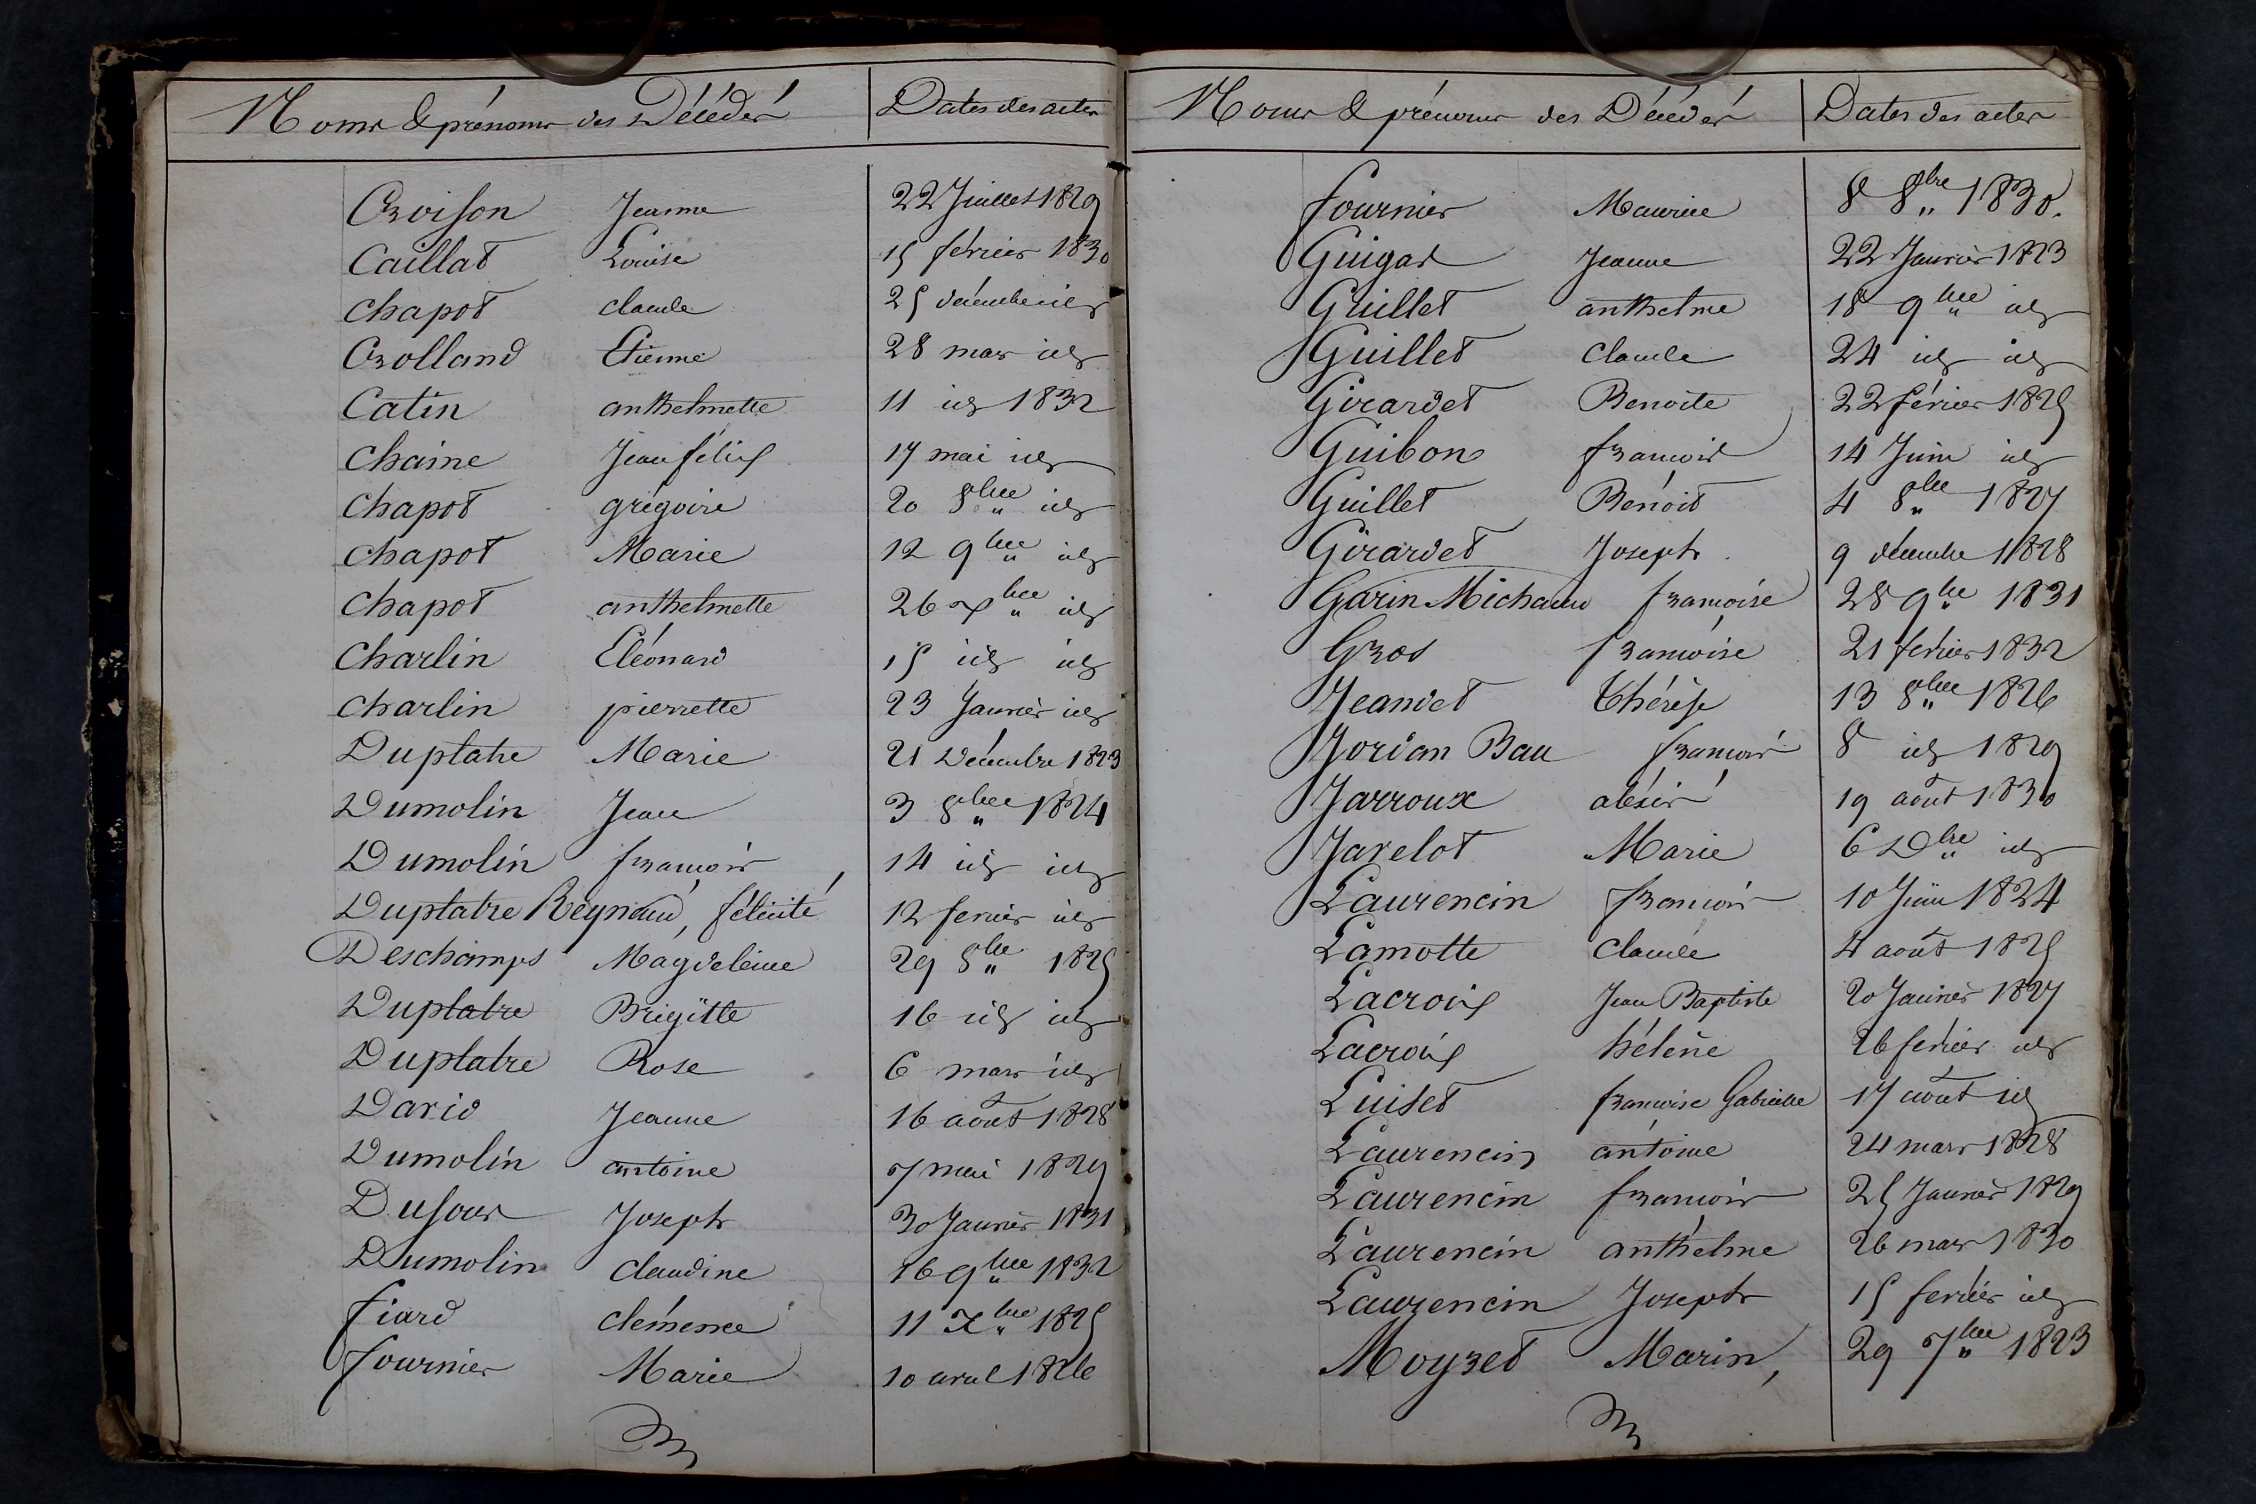 Noms & prénoms des Décédés Dates des actes
Croison Jeanne 22 Juillet 1829
Caillat Louise 15 février 1830
Chapot claude 25 décembre id
Crolland Etienne 28 mars id
Catin anthelmette 11 id 1832
Chaine Jean félix 17 mai id
Chapot grégoire 20 8bre id
Chapot Marie 12 9bre id
Chapot anthelmette 26 xbre id
Charlin Eléonard 15 id id
Charlin pierrette 23 Janvier id
Duplatre Marie 21 Décembre 1823
Dumolin Jean 3 8bre 1824
Dumolin françois 14 id id
Duplatre Reynaud, félicité 12 fevrier id
Deschamps Magdeleine 29 8bre 1825
Duplatre Brigitte 16 id id
Duplatre Rose 6 mars id
David Jeanne 16 août 1828
Dumolin antoine 7 mai 1829
Dufour Joseph 30 Janvier 1831
Dumolin claudine 16 9bre 1832
fiard clémence 11 Xbre 1825
fournier Marie 10 avril 1826
Noms & prénoms des Décédés Dates des actes
fournier Maurice 8 8bre 1830.
Guigard Jeanne 22 Janvier 1823
Guillet anthelme 18 9bre id
Guillet Claude 24 id id
Girardet Benoite 22 février 1825
Guibon françois 14 Juin id
Guillet Benoit 4 8bre 1827
Girardet Joseph 9 décembre 1828
Garin Michaud françoise 28 9bre 1831
Gros françoise 21 fevrier 1832
Jeandet Thérèse 13 8bre 1826
Jordan Bau françois 8 id 1829
Jarroux 19 août 1830
Javelot Marie 6 Dbre id
Laurencin françois 10 Juin 1824
Lamotte Claude 4 août 1825
Lacroix Jean Baptiste 20 Janvier 1827
Lacroix hélène 26 fevrier id
Luiset françoise Gabrielle 17 août id
Laurencin antoine 24 mars 1828
Laurencin françois 25 Janvier 1829
Laurencin anthelme 26 mars 1830
Laurencin Joseph 15 fevrier id
Moyret Marin, 29 7bre 1823